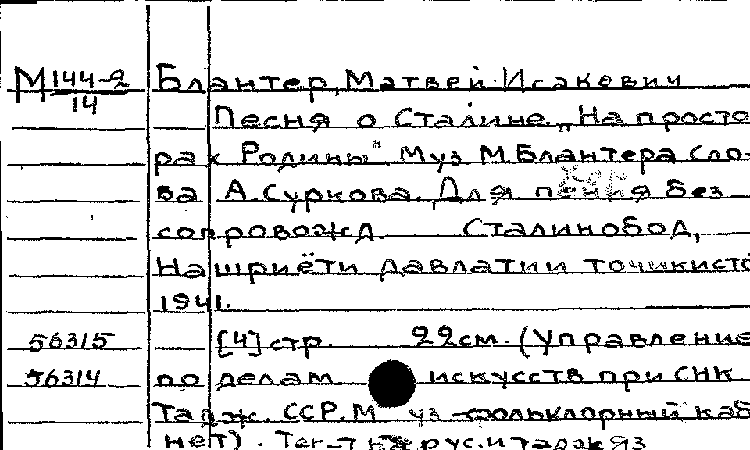 М 144-2 Блантер, Матвей Исакович
14
Песня о Сталине. „На просто
рах Родины". Муз М. Блантера Сло-
ва А. Суркова. Для пения без
сопровожд. Сталинобод,
Нашриёти давлатии точикисто
1941.
56315 [4] стр. 22см. (Управление
56314 по делам искусств при СНК
Тадж. ССР. Муз-фольклорный каб
нет).